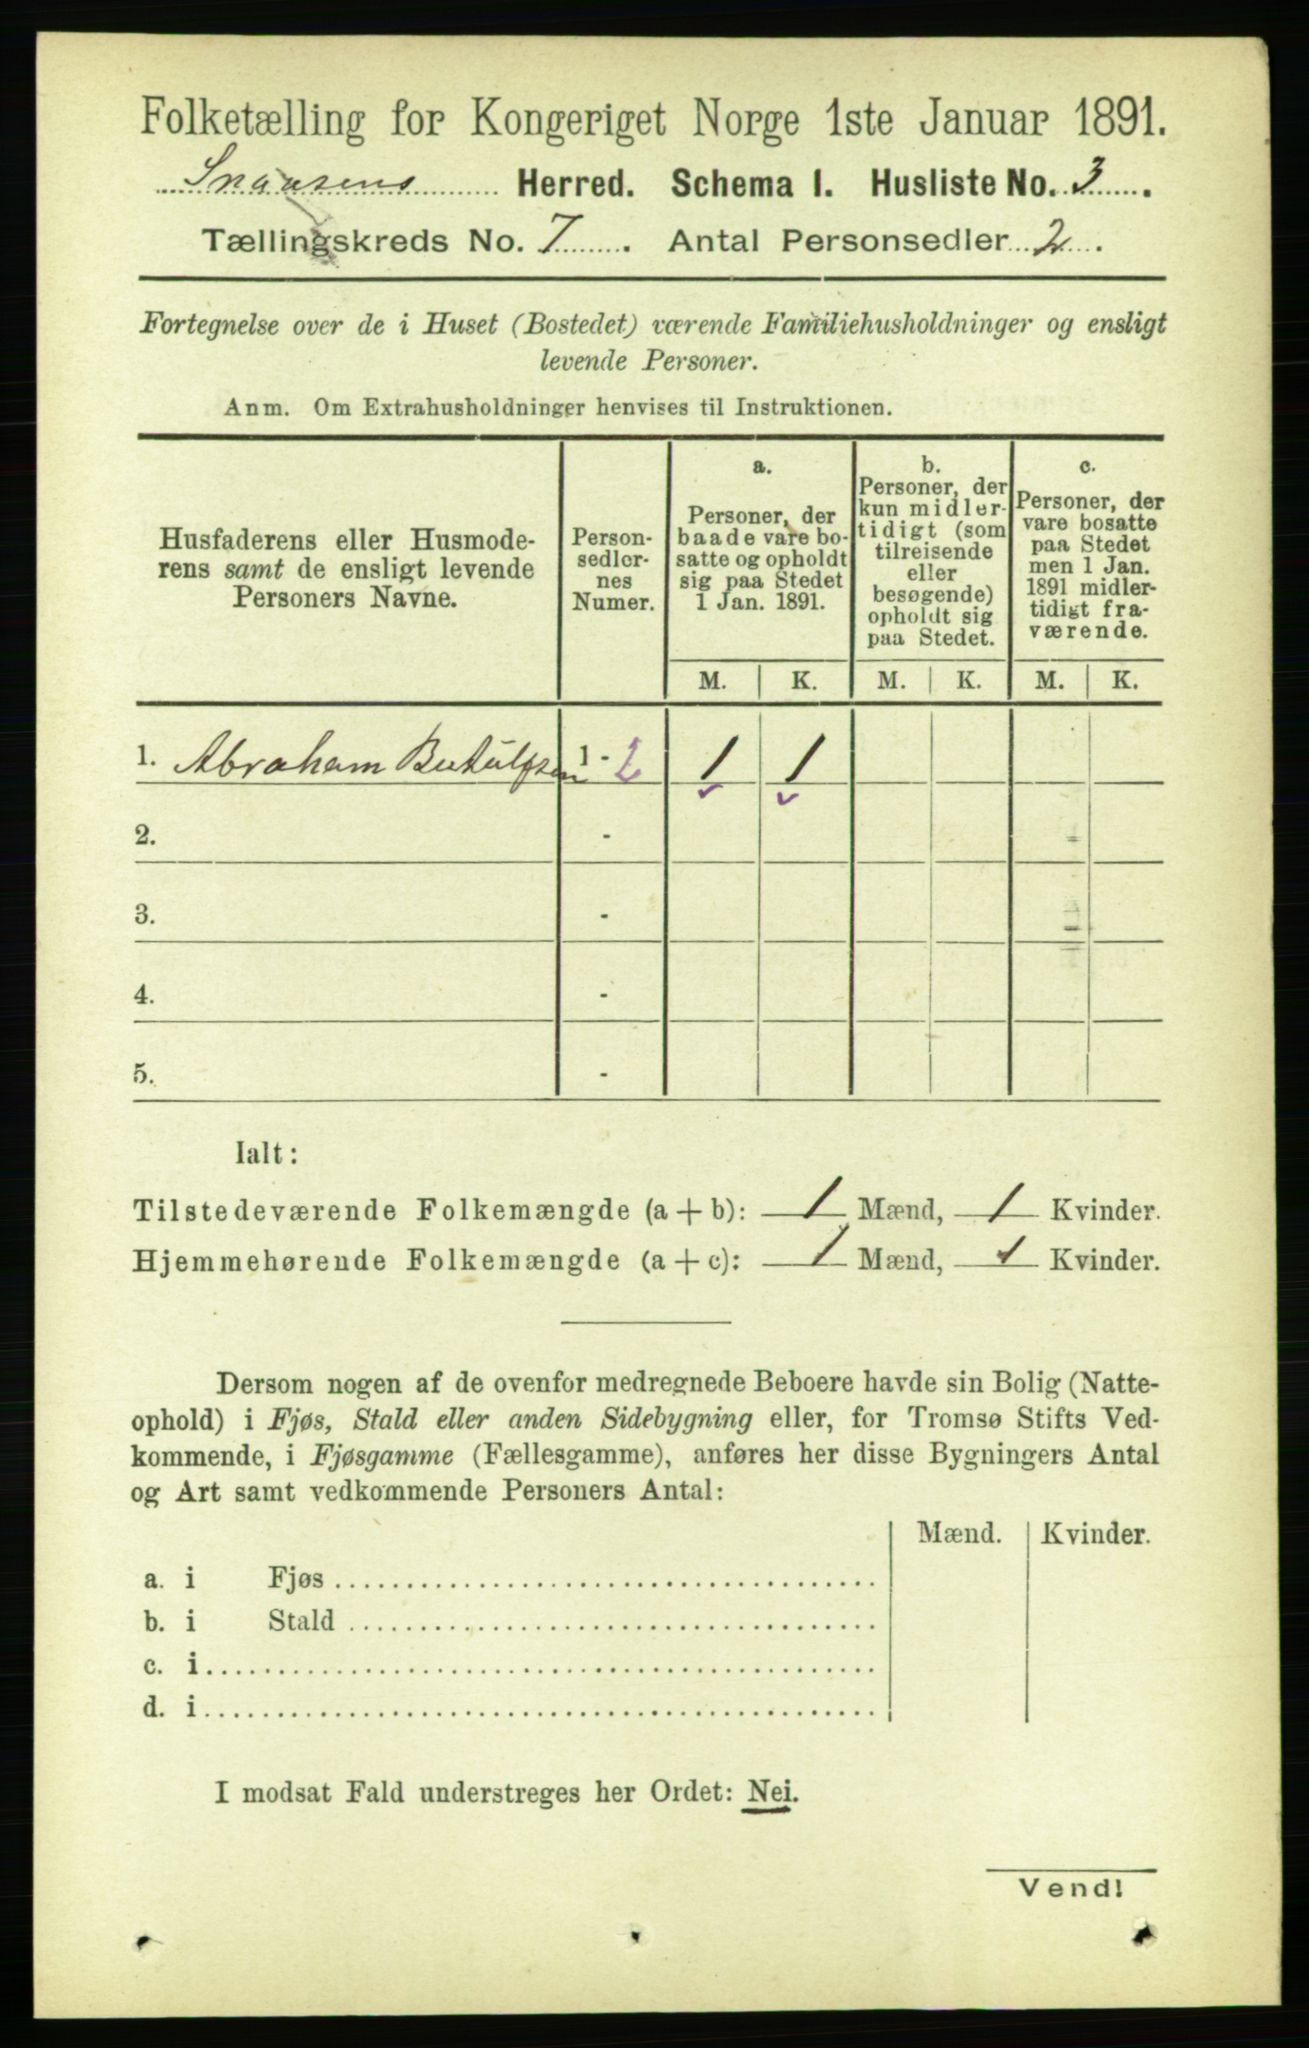 Folketælling for Kongeriget Norge 1ste Januar 1891.
Snaasens Herred. Schema I. Husliste No. 3.
Tællingskreds No. 7. Antal Personsedler 2.
Fortegnelse over de i Huset (Bostedet) værende Familiehusholdninger og ensligt
levende Personer.
Anm. Om Extrahusholdninger henvises til Instruktionen.
Husfaderens eller Husmode-
rens samt de ensligt levende
Personers Navne.
Person-
sedler-
nes
Numer.
a.
Personer, der
baade vare bo-
satte og opholdt
sig paa Stedet
1 Jan. 1891.
b.
Personer, der
kun midler-
tidigt (som
tilreisende
eller
besøgende)
opholdt sig
paa Stedet.
c.
Personer, der
vare bosatte
paa Stedet
men 1 Jan.
1891 midler-
tidigt fra-
værende.
M. K. M. K. M. K.
1. Abraham 1 - 2 1 1
2. -
3. -
4. -
5. -
Ialt:
Tilstedeværende Folkemængde (a + b): 1 Mænd, 1 Kvinder.
Hjemmehørende Folkemængde (a + c): 1 Mænd, 1 Kvinder.
Dersom nogen af de ovenfor medregnede Beboere havde sin Bolig (Natte-
ophold) i Fjøs, Stald eller anden Sidebygning eller, for Tromsø Stifts Ved-
kommende, i Fjøsgamme (Fællesgamme), anføres her disse Bygningers Antal
og Art samt vedkommende Personers Antal:
Mænd. Kvinder.
a. i Fjøs
b. i Stald
c. i
d. i
I modsat Fald understreges her Ordet: Nei.
Vend!